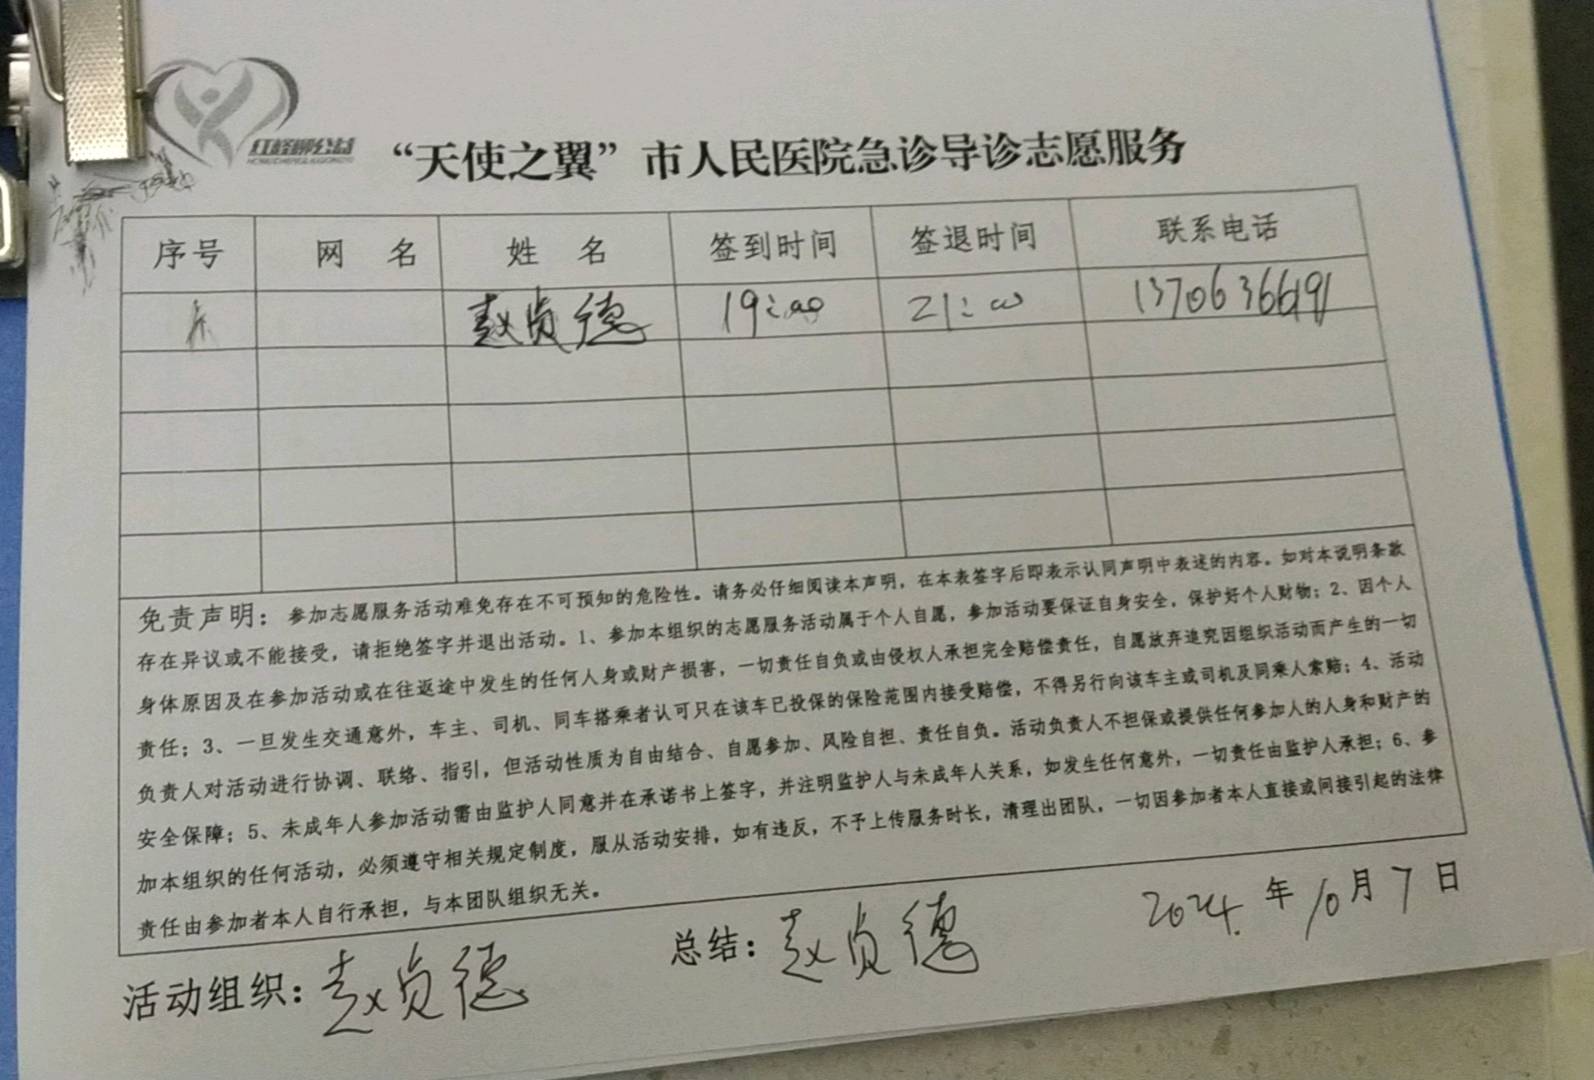 “天使之翼”市人民医院急诊导诊志愿服务
序号 网 名 姓 名 签到时间 签退时间 联系电话
赵贞德 19:00 21:00 13706366191
免责声明：参加志愿服务活动难免存在不可预知的危险性。请务必仔细阅读本声明，在本表签字后即表示认同声明中表述的内容。如对本说明条款
存在异议或不能接受，请拒绝签字并退出活动。1、参加本组织的志愿服务活动属于个人自愿，参加活动要保证自身安全，保护好个人财物；2、因个人
身体原因及在参加活动或在往返途中发生的任何人身或财产损害，一切责任自负或由侵权人承担完全赔偿责任，自愿放弃追究因组织活动而产生的一切
责任；3、一旦发生交通意外，车主、司机、同车搭乘者认可只在该车已投保的保险范围内接受赔偿，不得另行向该车主或司机及同乘人索赔；4、活动
负责人对活动进行协调、联络、指引，但活动性质为自由结合、自愿参加、风险自担、责任自负。活动负责人不担保或提供任何参加人的人身和财产的
安全保障；5、未成年人参加活动需由监护人同意并在承诺书上签字，并注明监护人与未成年人关系，如发生任何意外，一切责任由监护人承担；6、参
加本组织的任何活动，必须遵守相关规定制度，服从活动安排，如有违反，不予上传服务时长，清理出团队，一切因参加者本人直接或间接引起的法律
责任由参加者本人自行承担，与本团队组织无关。
活动组织：赵贞德 总结：赵贞德 2024年10月7日